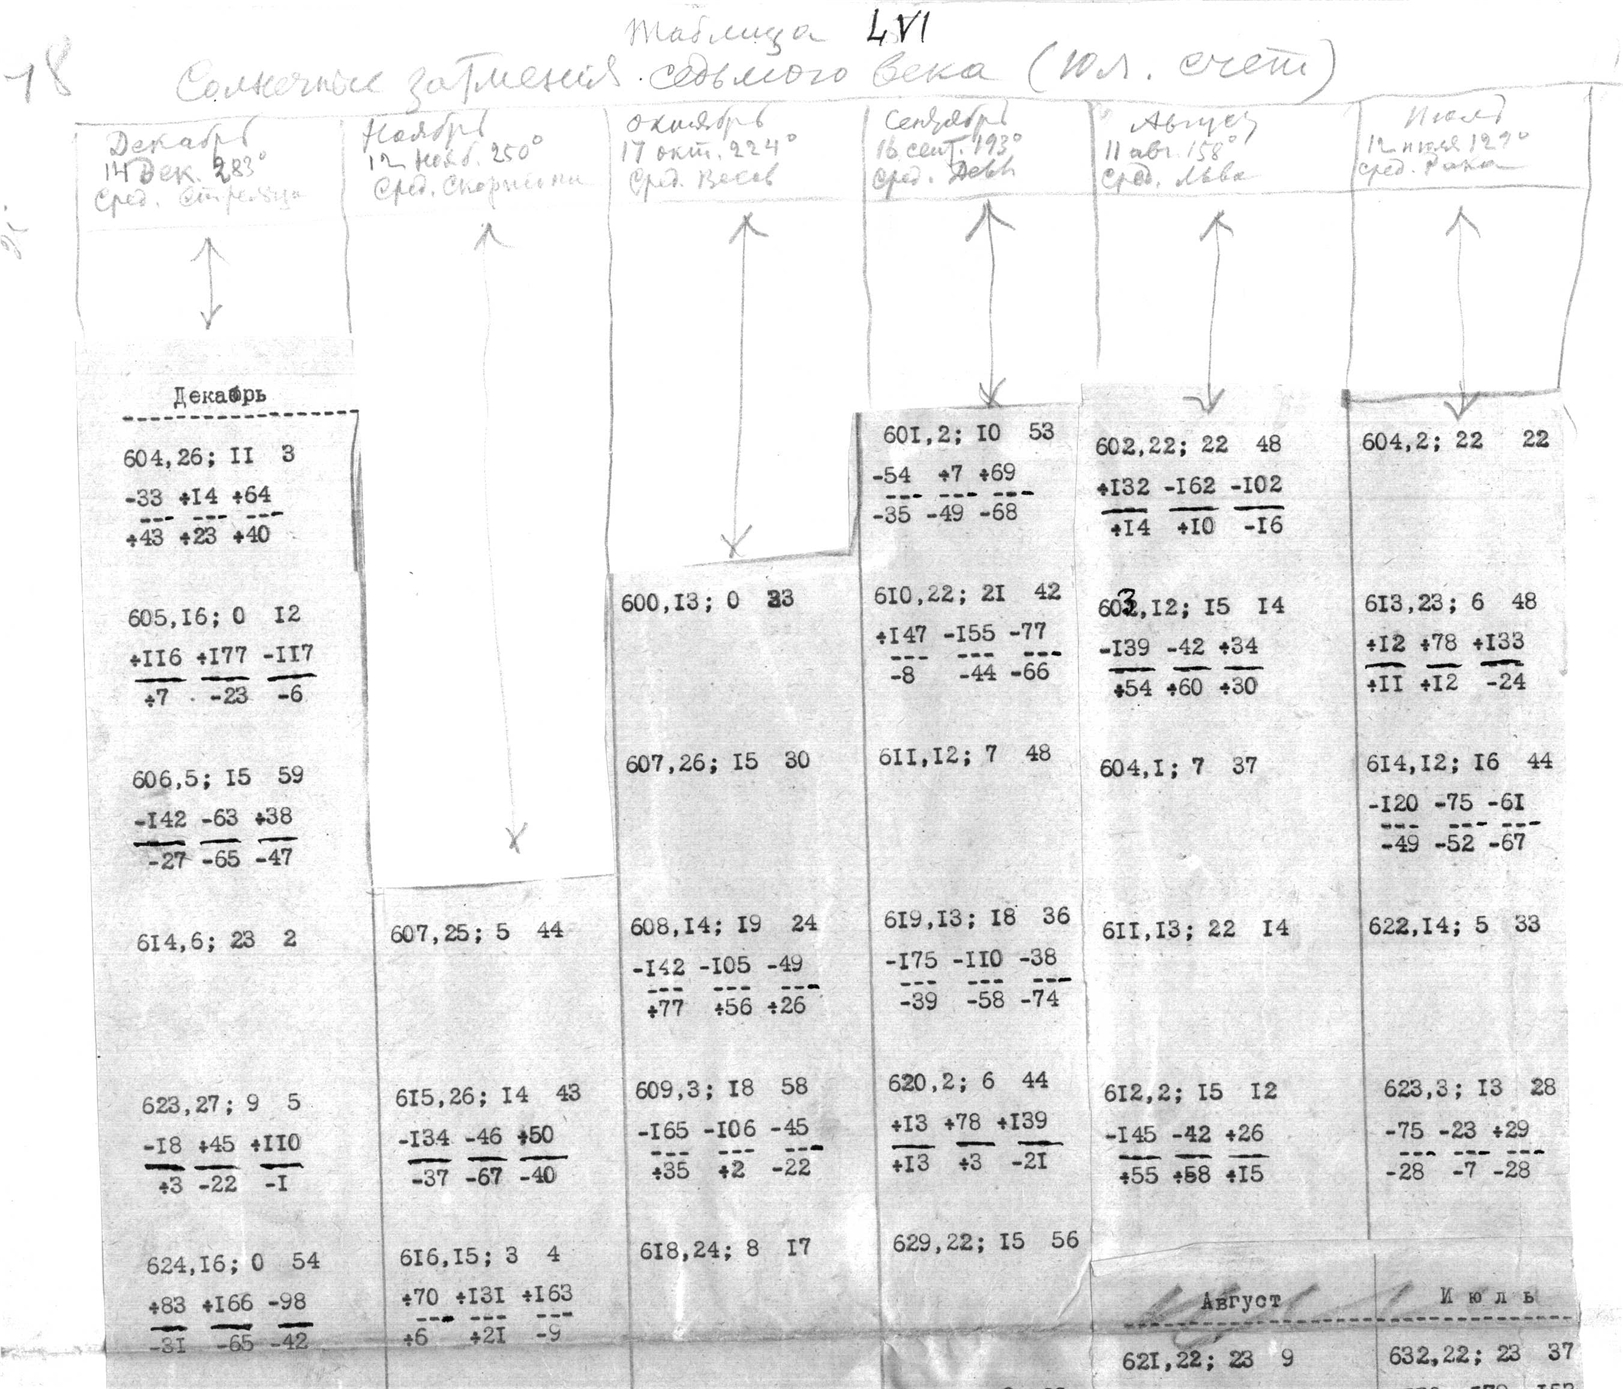 Таблица LVI
18
Солнечные затмения седьмого века (юл. счет)
Декабрь
14 Дек. 283°
Сред. Стрельца
Ноябрь
12 Нояб. 250°
Сред. Скорпиона
Октябрь
17 окт. 224°
Сред. Весов
Сентябрь
16 сент. 193°
Сред. Девы
Август
11 авг. 158°
Сред. Льва
Июль
12 июля 127°
Сред. Рака
Декабрь
604,26; II 3
-33 +I4 +64
+43 +23 +40
605,I6; 0 I2
+II6 +I77 -II7
+7 -23 -6
606,5; I5 59
-I42 -63 +38
-27 -65 -47
6I4,6; 23 2
623,27; 9 5
-I8 +45 +II0
+3 -22 -I
624,I6; 0 54
+83 +I66 -98
-3I -65 -42
607,25; 5 44
6I5,26; I4 43
-I34 -46 +50
-37 -67 -40
6I6,I5; 3 4
+70 +I3I +I63
+6 +2I -9
600,I3; 0 33
607,26; I5 30
608,I4; I9 24
-I42 -I05 -49
+77 +56 +26
609,3; I8 58
-I65 -I06 -45
+35 +2 -22
6I8,24; 8 I7
60I,2; I0 53
-54 +7 +69
-35 -49 -68
6I0,22; 2I 42
+I47 -I55 -77
-8 -44 -66
6II,I2; 7 48
6I9,I3; I8 36
-I75 -II0 -38
-39 -58 -74
620,2; 6 44
+I3 +78 +I39
+I3 +3 -2I
629,22; I5 56
602,22; 22 48
+I32 -I62 -I02
+I4 +I0 -I6
603,I2; I5 I4
-I39 -42 +34
+54 +60 +30
604,I; 7 37
6II,I3; 22 I4
6I2,2; I5 I2
-I45 -42 +26
+55 +58 +I5
Август
62I,22; 23 9
604,2; 22 22
6I3,23; 6 48
+I2 +78 +I33
+II +I2 -24
6I4,I2; I6 44
-I20 -75 -6I
-49 -52 -67
622,I4; 5 33
623,3; I3 28
-75 -23 +29
-28 -7 -28
Июль
632,22; 23 37